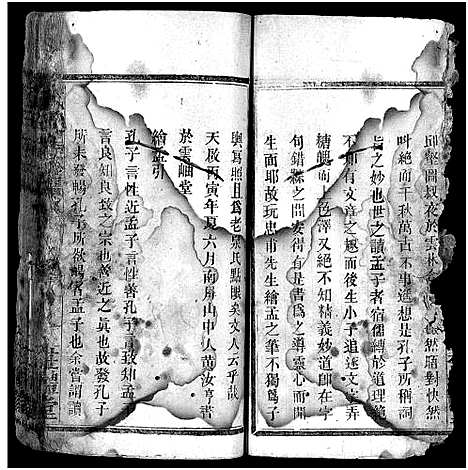 叫絕而千秋萬古不事遐想是孔子所稱詞
旨之妙也世之讀孟子者宿儒縛於道理
不知有文章之趣而後生小子追逐文字弄
糟魄而 色澤又絕不知精義妙道即在字
句錯縣之間安得有是書爲之導靈心而開
生面耶故玩忠甫先生繪孟之筆不獨爲子
輿寫照且爲老泉氏點睛矣文人云乎哉
天啟丙寅年夏六月南屏山中人黃汝亨書
於雲岫堂
繪孟引
孔子言性近孟子言性善孔子言致知孟子
言良知良致之宗也善近之眞也故發孔子
所未發暢孔子所欲暢者孟子也余嘗謂讀